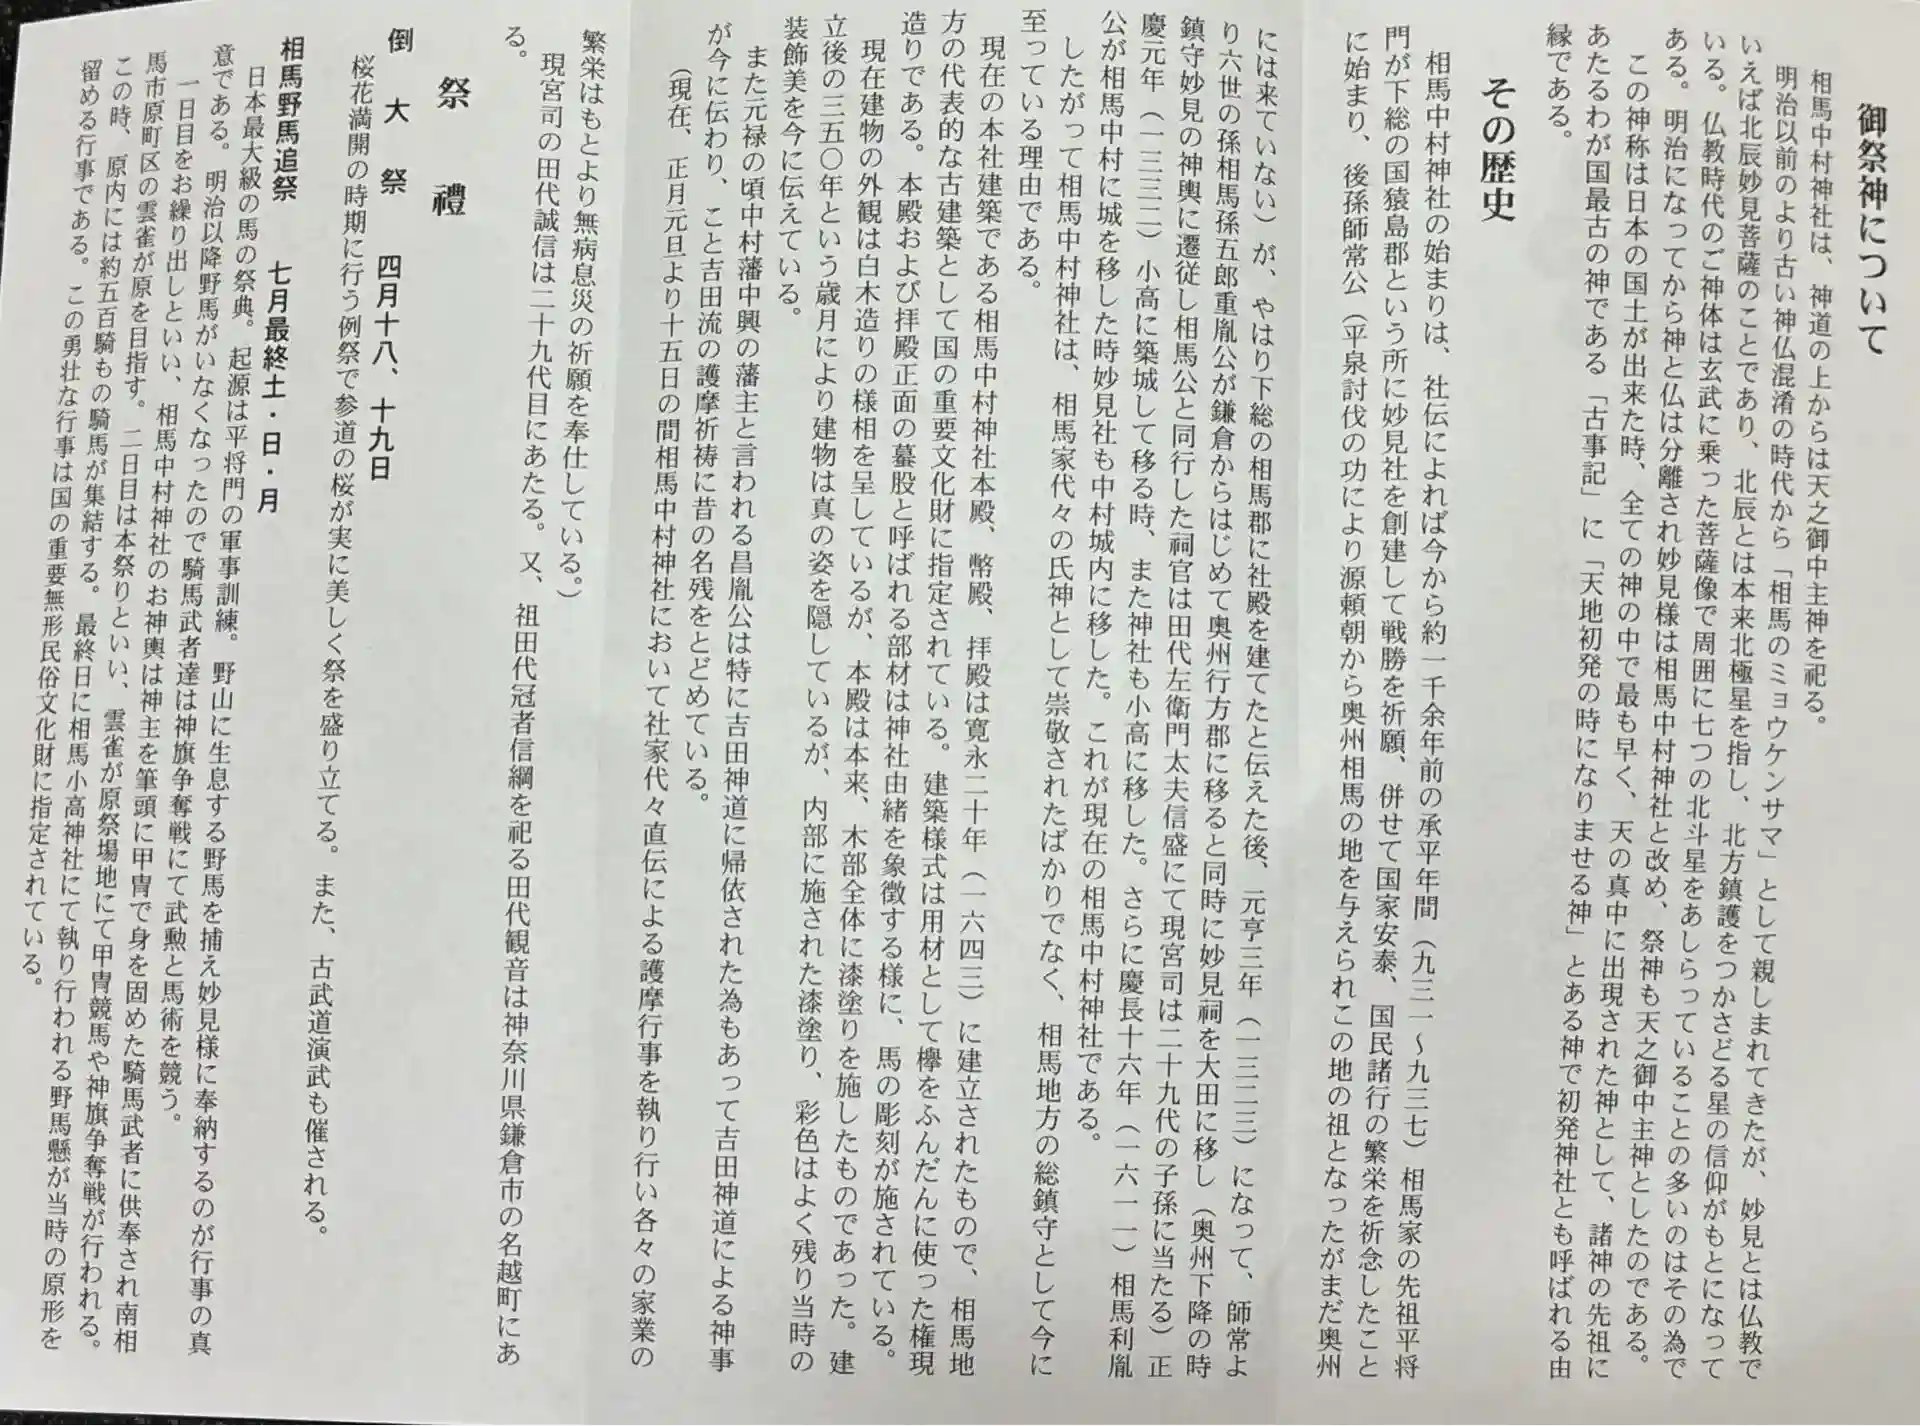 御祭神について
相馬中村神社は、神道の上からは天之御中主神を祀る。
明治以前のより古い神仏混淆の時代から「相馬のミョウケンサマ」として親しまれてきたが、妙見とは仏教で
いえば北辰妙見菩薩のことであり、北辰とは本来北極星を指し、北方鎮護をつかさどる星の信仰がもとになって
いる。仏教時代のご神体は玄武に乗った菩薩像で周囲に七つの北斗星をあしらっていることの多いのはその為で
ある。明治になってから神と仏は分離され妙見様は相馬中村神社と改め、祭神も天之御中主神としたのである。
この神称は日本の国土が出来た時、全ての神の中で最も早く、天の真中に出現された神として、諸神の先祖に
あたるわが国最古の神である「古事記」に「天地初発の時になりませる神」とある神で初発神社とも呼ばれる由
縁である。
その歴史
相馬中村神社の始まりは、社伝によれば今から約一千余年前の承平年間（九三一～九三七）相馬家の先祖平将
門が下総の国猿島郡という所に妙見社を創建して戦勝を祈願、併せて国家安泰、国民諸行の繁栄を祈念したこと
に始まり、後孫師常公（平泉討伐の功により源頼朝から奥州相馬の地を与えられこの地の祖となったがまだ奥州
には来ていない）が、やはり下総の相馬郡に社殿を建てたと伝えた後、元亨三年（一三二三）になって、師常よ
り六世の孫相馬孫五郎重胤公が鎌倉からはじめて奥州行方郡に移ると同時に妙見祠を大田に移し（奥州下降の時
鎮守妙見の神輿に遷従し相馬公と同行した祠官は田代左衛門太夫信盛にて現宮司は二十九代の子孫に当たる）正
慶元年（一三三二）小高に築城して移る時、また神社も小高に移した。さらに慶長十六年（一六一一）相馬利胤
公が相馬中村に城を移した時妙見社も中村城内に移した。これが現在の相馬中村神社である。
したがって相馬中村神社は、相馬家代々の氏神として崇敬されたばかりでなく、相馬地方の総鎮守として今に
至っている理由である。
現在の本社建築である相馬中村神社本殿、幣殿、拝殿は寛永二十年（一六四三）に建立されたもので、相馬地
方の代表的な古建築として国の重要文化財に指定されている。建築様式は用材として欅をふんだんに使った権現
造りである。本殿および拝殿正面の蟇股と呼ばれる部材は神社由緒を象徴する様に、馬の彫刻が施されている。
現在建物の外観は白木造りの様相を呈しているが、本殿は本来、木部全体に漆塗りを施したものであった。建
立後の三五〇年という歳月により建物は真の姿を隠しているが、内部に施された漆塗り、彩色はよく残り当時の
装飾美を今に伝えている。
また元禄の頃中村藩中興の藩主と言われる昌胤公は特に吉田神道に帰依された為もあって吉田神道による神事
が今に伝わり、こと吉田流の護摩祈祷に昔の名残をとどめている。
（現在、正月元旦より十五日の間相馬中村神社において社家代々直伝による護摩行事を執り行い各々の家業の
繁栄はもとより無病息災の祈願を奉仕している。）
現宮司の田代誠信は二十九代目にあたる。又、祖田代冠者信綱を祀る田代観音は神奈川県鎌倉市の名越町にあ
る。
祭 禮
倒 大 祭 四月十八、十九日
桜花満開の時期に行う例祭で参道の桜が実に美しく祭を盛り立てる。また、古武道演武も催される。
相馬野馬追祭 七月最終土・日・月
日本最大級の馬の祭典。起源は平将門の軍事訓練。野山に生息する野馬を捕え妙見様に奉納するのが行事の真
意である。明治以降野馬がいなくなったので騎馬武者達は神旗争奪戦にて武勲と馬術を競う。
一日目をお繰り出しといい、相馬中村神社のお神輿は神主を筆頭に甲冑で身を固めた騎馬武者に供奉され南相
馬市原町区の雲雀が原を目指す。二日目は本祭りといい、雲雀が原祭場地にて甲冑競馬や神旗争奪戦が行われる。
この時、原内には約五百騎もの騎馬が集結する。最終日に相馬小高神社にて執り行われる野馬懸が当時の原形を
留める行事である。この勇壮な行事は国の重要無形民俗文化財に指定されている。